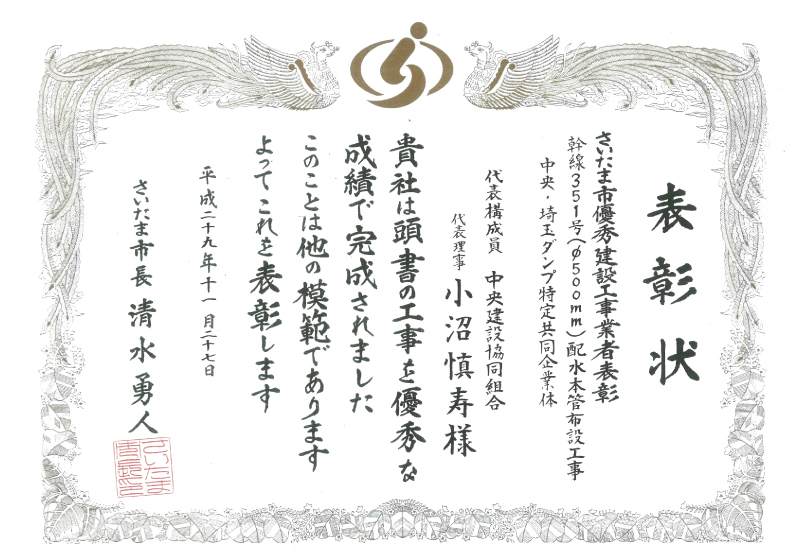 表彰状
さいたま市優秀建設工事業者表彰
幹線351号(φ500mm)配水本管布設工事
中央・埼玉ダンプ特定共同企業体
代表構成員 中央建設協同組合
代表理事 小沼慎寿様
貴社は頭書の工事を優秀な
成績で完成されました
このことは他の模範であります
よってこれを表彰します
平成二十九年十一月二十七日
さいたま市長 清水勇人
さいたま
市長之印